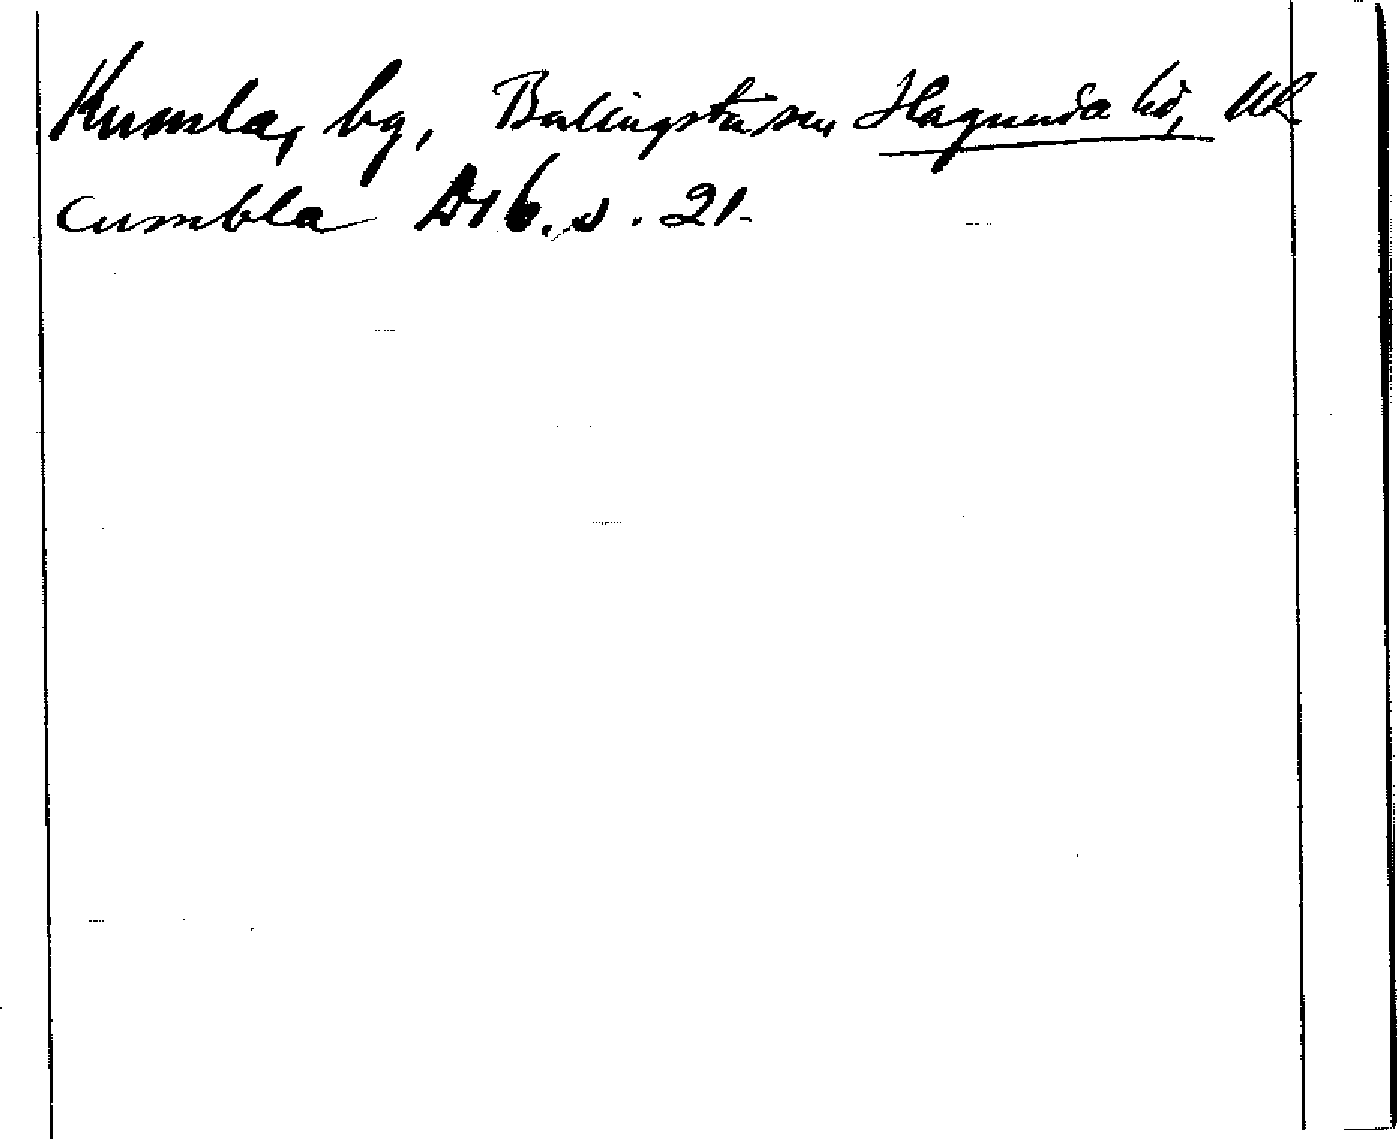 Kumla, by, Balingsta sn, Hagunda hd, Ul.
cumbla D16. s. 21.